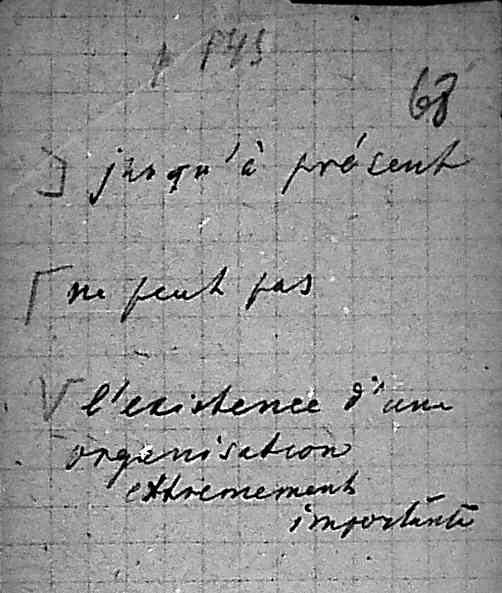 p 143
68
jusqu'à présent
ne peut pas
l'existence d'une
organisation
extrêmement
importante